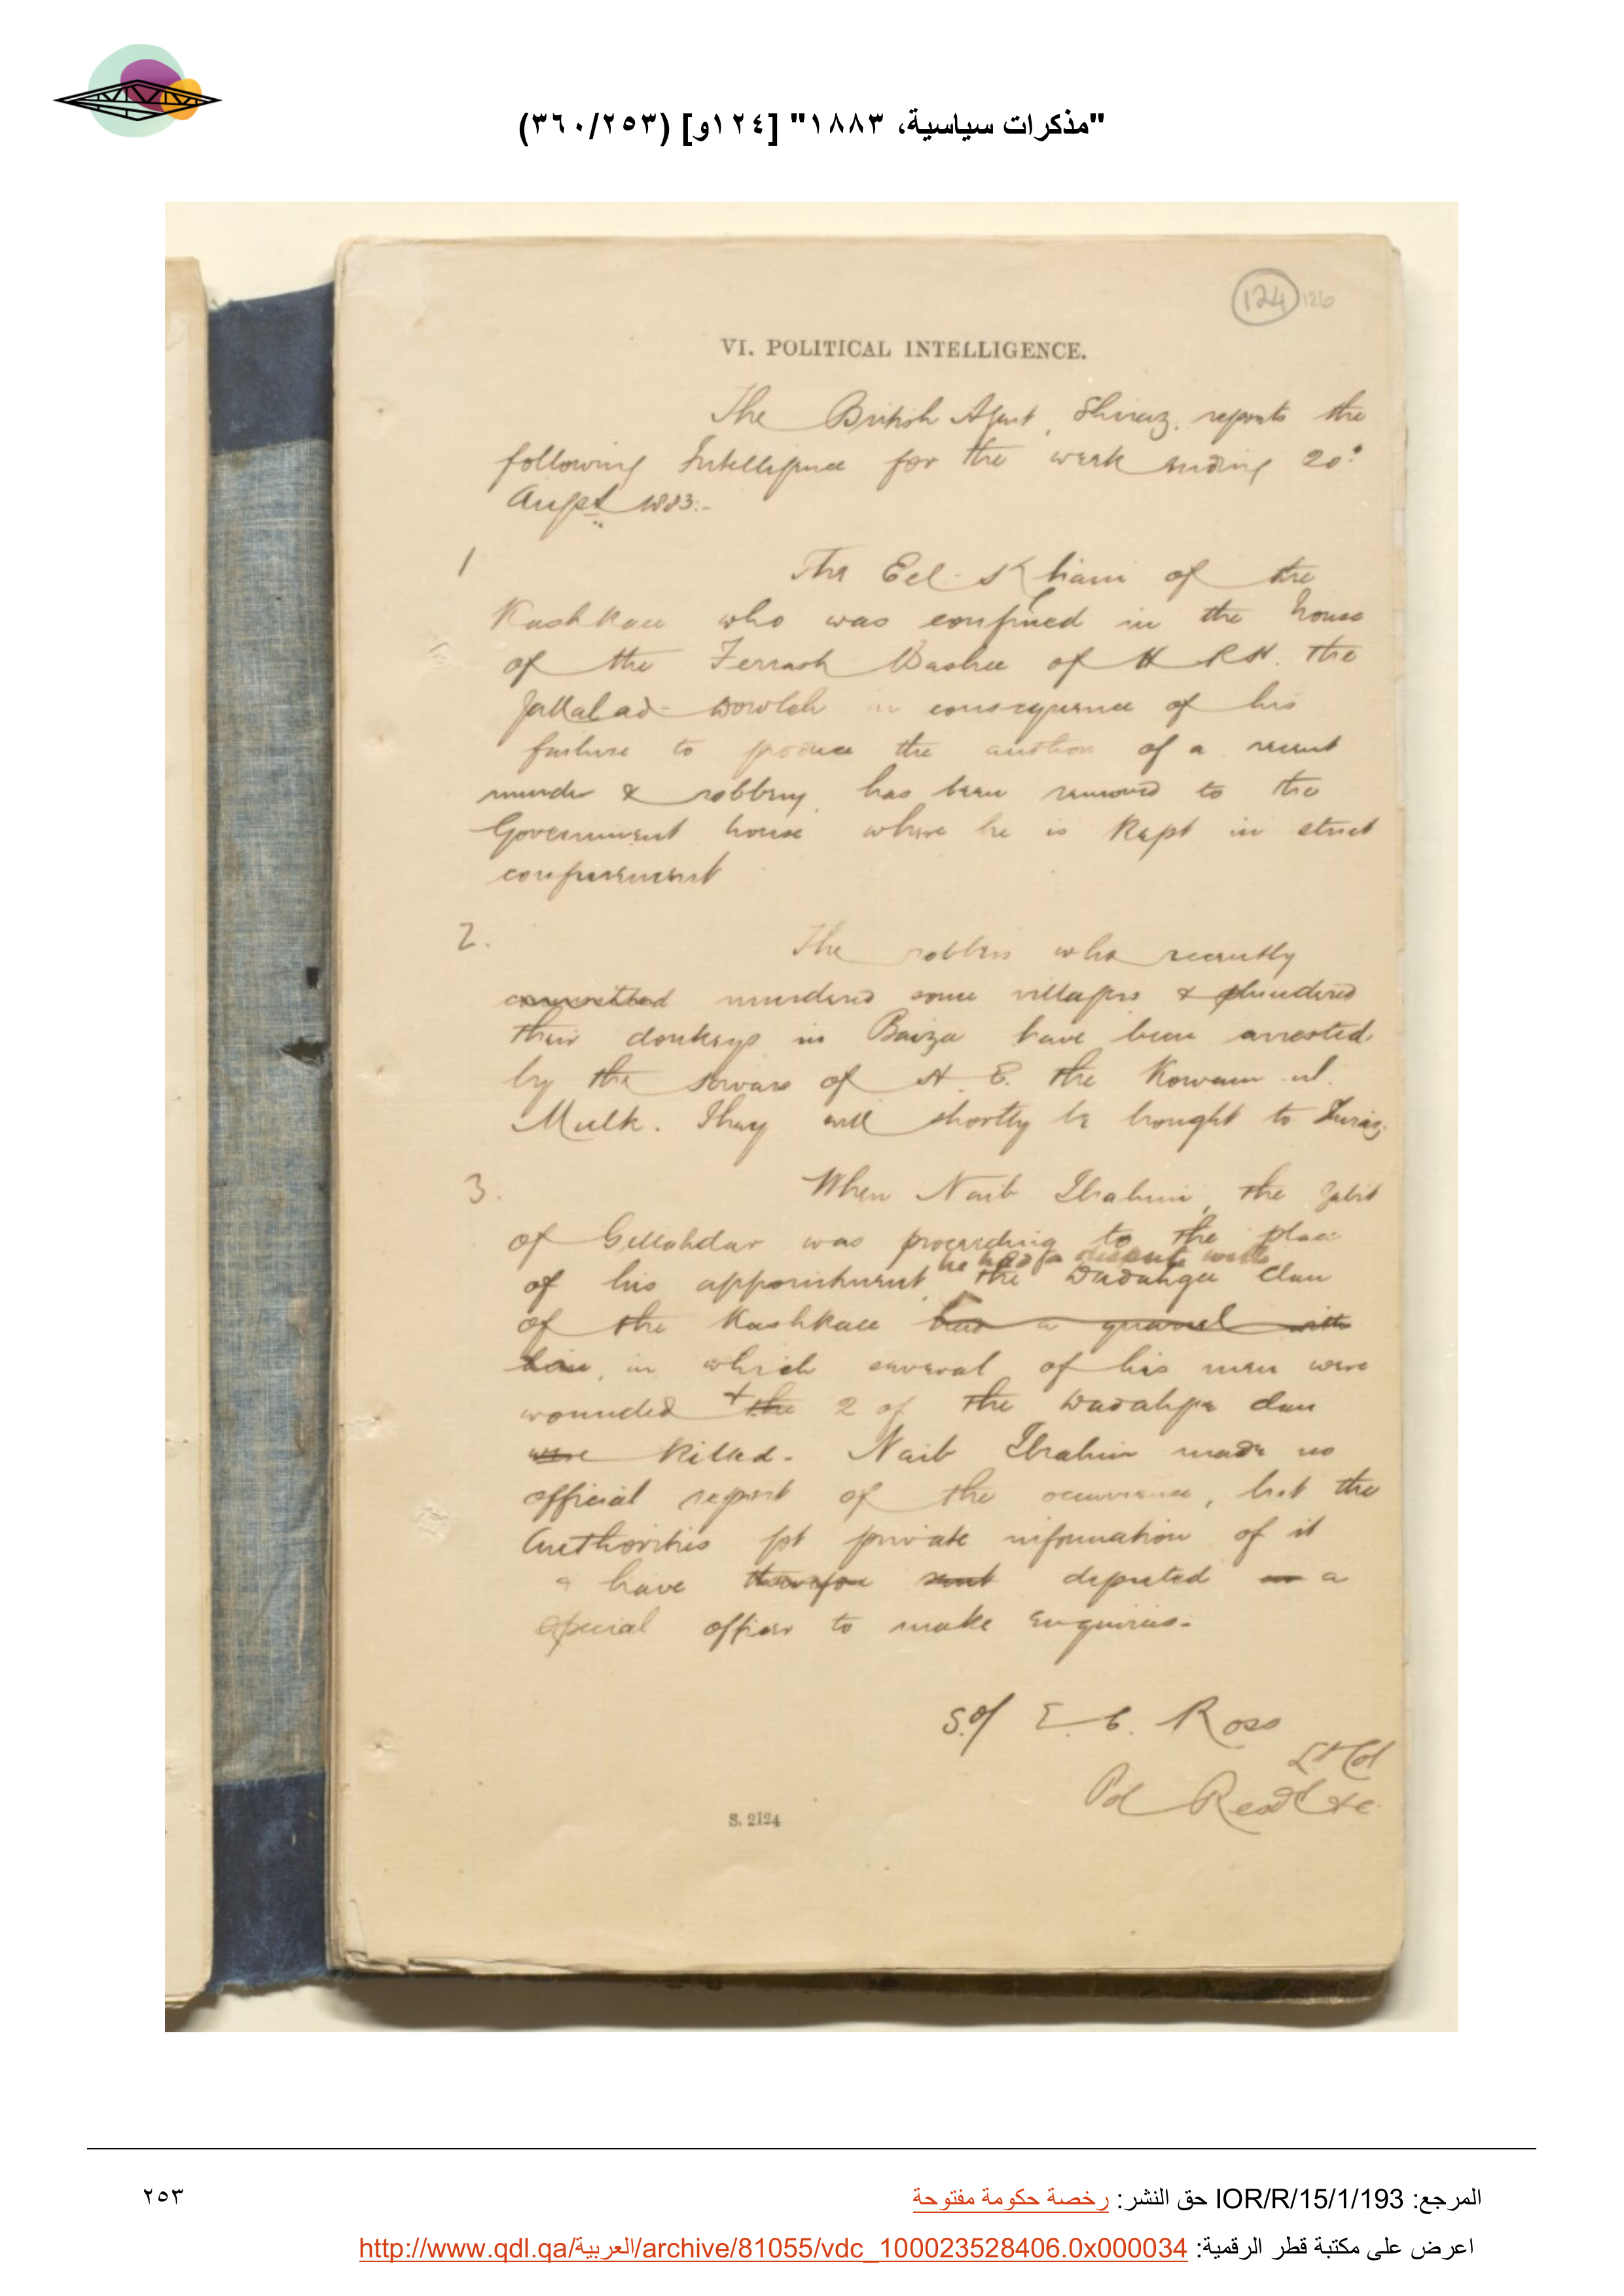 "مذكرات سياسية، ١٨٨٣" [١٢٤و] (٣٦٠/٢٥٣)
124 126
VI. POLITICAL INTELLIGENCE.
The British Agent, Shiraz, reports the
following Intelligence for the week ending 20th
Augst 1883:-
1 The Eel-Khani of the
Kashkaee who was confined in the house
of the Ferrash Bashee of H R H. the
Jallal-ad-Dowleh in consequence of his
failure to produce the author of a recent
murder & robbery, has been removed to the
Government house where he is kept in strict
confinement
2. The robbers who recently
committed murdered some villagers & plundered
their donkeys in Baiza have been arrested
by the sowars of H. E. the Kowam-ul-
Mulk. They will shortly be brought to Shiraz
3. When Naib Ibrahim, the Zabit
of Gillahdar was proceeding to the place
he had a dispute with
of his appointment, the Dadahgee clan
of the Kashkaee had a quarrel with
him, in which several of his men were
wounded & the 2 of the Dadahgee clan
were killed. Naib Ibrahim made no
official report of the occurrence, but the
Authorities got private information of it
& have therefore sent deputed an a
special officer to make enquiries.-
Sd/ E. C. Ross
Lt Col
Pol Resdt &c.
S. 2124
المرجع: IOR/R/15/1/193 حق النشر: رخصة حكومة مفتوحة
٢٥٣
اعرض على مكتبة قطر الرقمية: http://www.qdl.qa/العربية/archive/81055/vdc_100023528406.0x000034